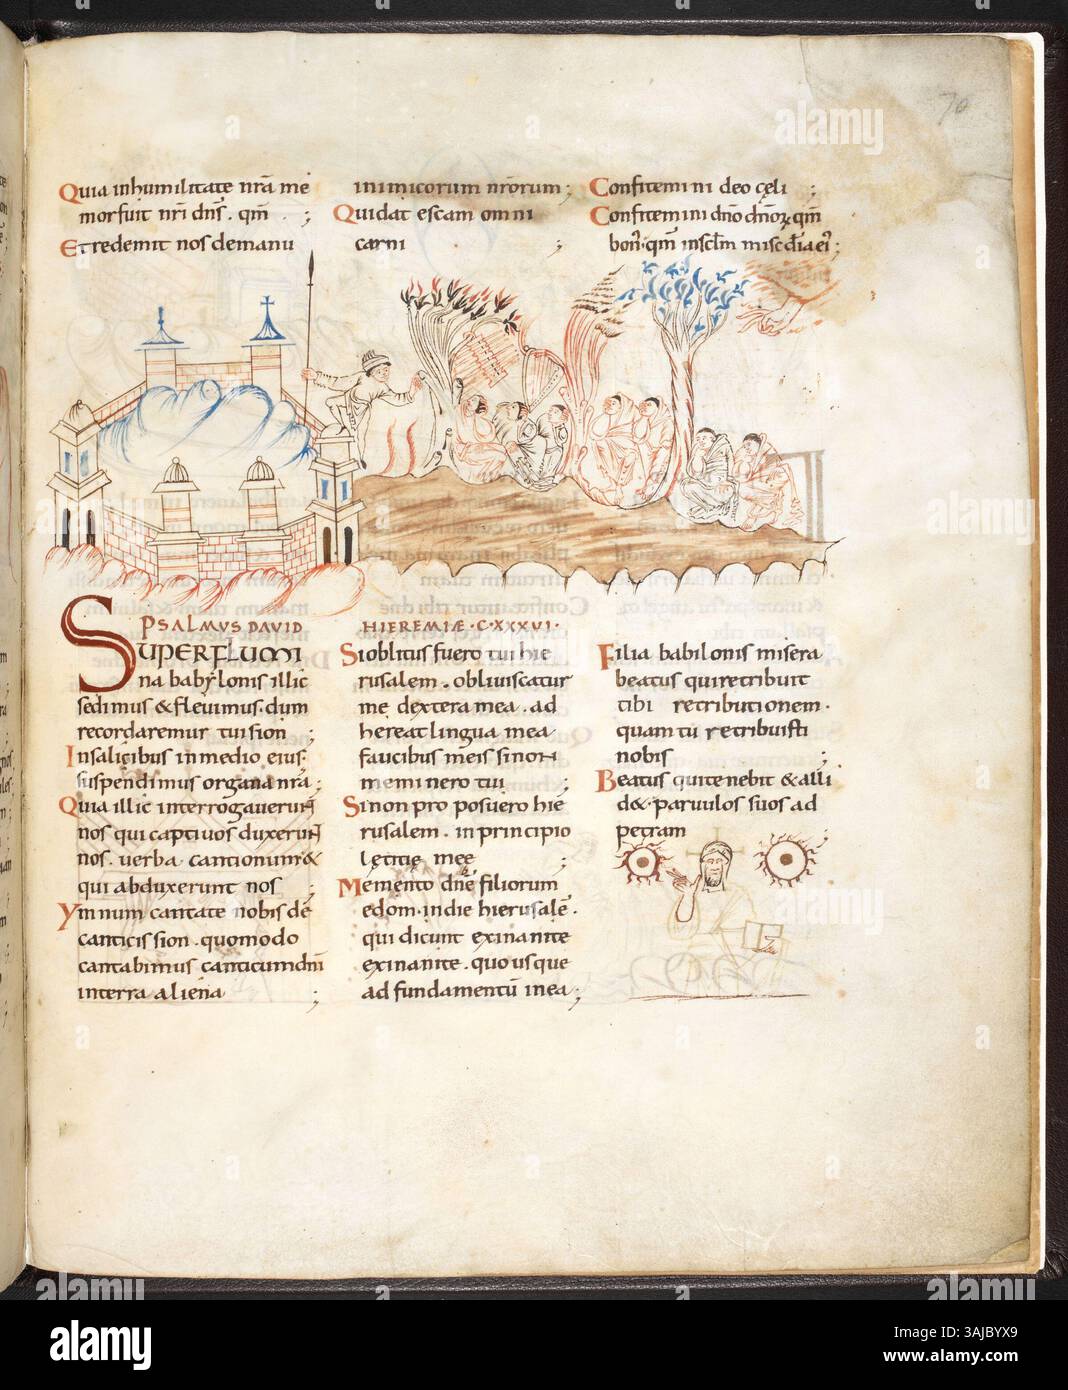 70
Quia inhumilitate nr̄a me
mor fuit nr̄i dn̄s. qm̄ ;
Et redemit nos demanu
inimicorum nr̄orum ;
Qui dat escam omni
carni ;
Confitemini deo cęli ;
Confitemini dn̄o dn̄orꝝ qm̄
bon'. qm̄
PSALMVS DAVID
HIEREMIÆ · C · XXXVI ·
SUPER FLUMI
na babylonis illic
sedimus & flevimus. dum
recordaremur tui sion ;
In salicibus in medio eius.
suspendimus organa nr̄a ;
Quia illic interrogaverunt
nos qui captivos duxerunt
nos. verba cantionum &
qui abduxerunt nos ;
Ymnum cantate nobis de
canticis sion. quomodo
cantabimus canticum dn̄i
in terra aliena ;
Si oblitus fuero tui hie
rusalem. obliviscatur
me dextera mea. ad
hereat lingua mea
faucibus meis si non
meminero tui ;
Si non proposuero hie
rusalem. in principio
lętitię meę ;
Memento dn̄e filiorum
edom. in die hierusalē.
qui dicunt exinanite
exinanite. quo usque
ad fundamentū in ea ;
Filia babilonis misera
beatus qui retribuit
tibi retributionem.
quam tu retribuisti
nobis ;
Beatus qui tenebit & alli
d& parvulos suos ad
petram ;
alamy
Image ID: 3AJBYX9
www.alamy.com